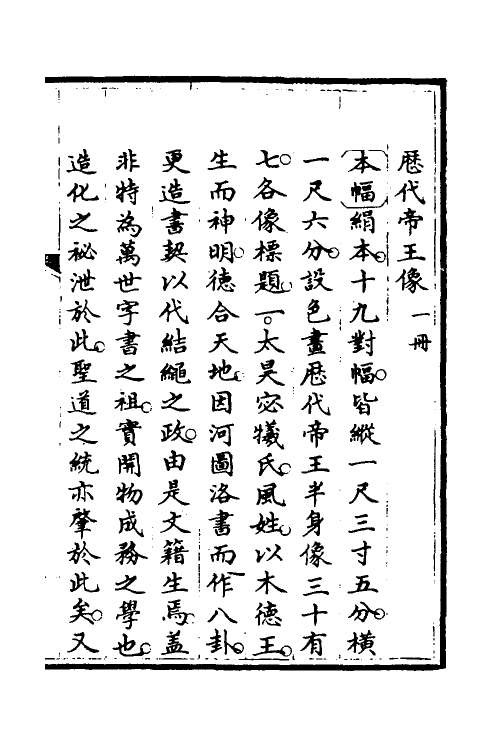 歷代帝王像 一冊
本幅絹本。十九對幅。皆縱一尺三寸五分。橫
一尺六分。設色畫歷代帝王半身像三十有
七。各像標題。一。太昊宓犧氏。風姓。以木德王。
生而神明。德合天地。因河圖洛書而作八卦。
更造書契以代結繩之政。由是文籍生焉。蓋
非特為萬世字書之祖。實開物成務之學也。
造化之祕泄於此。聖道之統亦肇於此矣。又